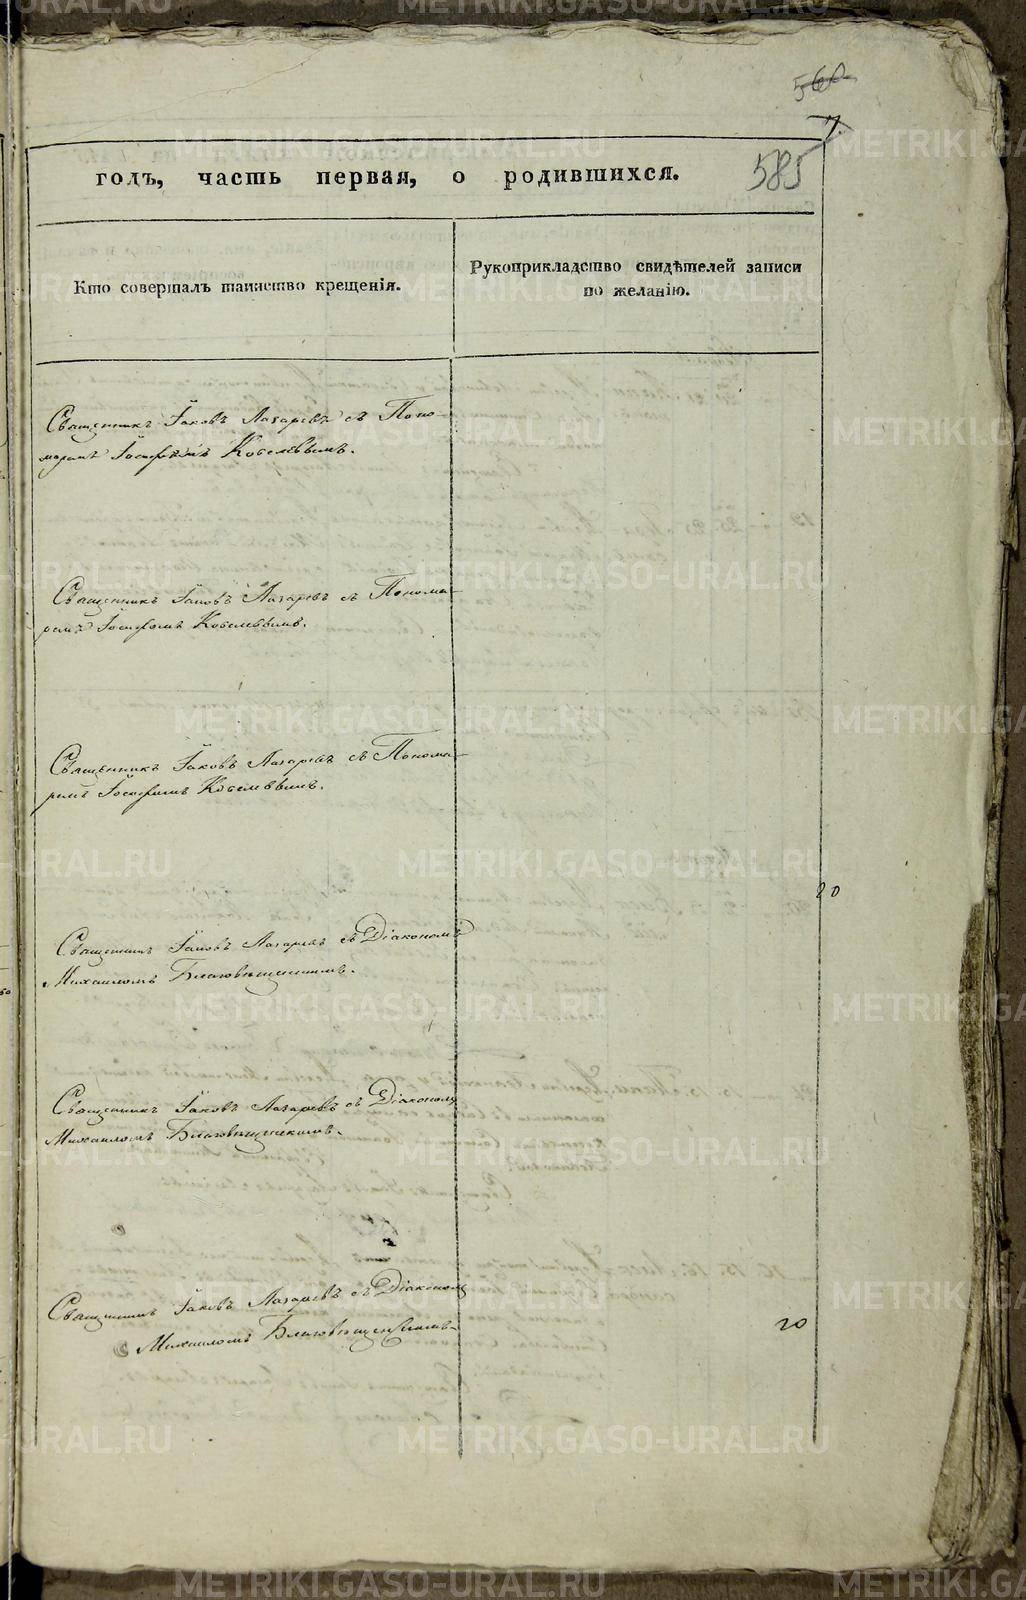 560
7.
585
годъ, часть первая, о родившихся.
Кто совершалъ таинство крещенія.
Рукоприкладство свидѣтелей записи
по желанію.
Священникъ Іаковъ Лазаревъ съ Поно-
маремъ Іосифомъ Кобелевымъ.
Священникъ Іаковъ Лазаревъ съ Понома-
ремъ Іосифомъ Кобелевымъ.
Священникъ Іаковъ Лазаревъ съ Понома-
ремъ Іосифомъ Кобелевымъ.
20
Священникъ Іаковъ Лазаревъ съ Діакономъ
Михаиломъ Благовѣщенскимъ.
Священникъ Іаковъ Лазаревъ съ Діакономъ
Михаиломъ Благовѣщенскимъ.
Священникъ Іаковъ Лазаревъ съ Діакономъ
Михаиломъ Благовѣщенскимъ.
20
METRIKI.GASO-URAL.RU